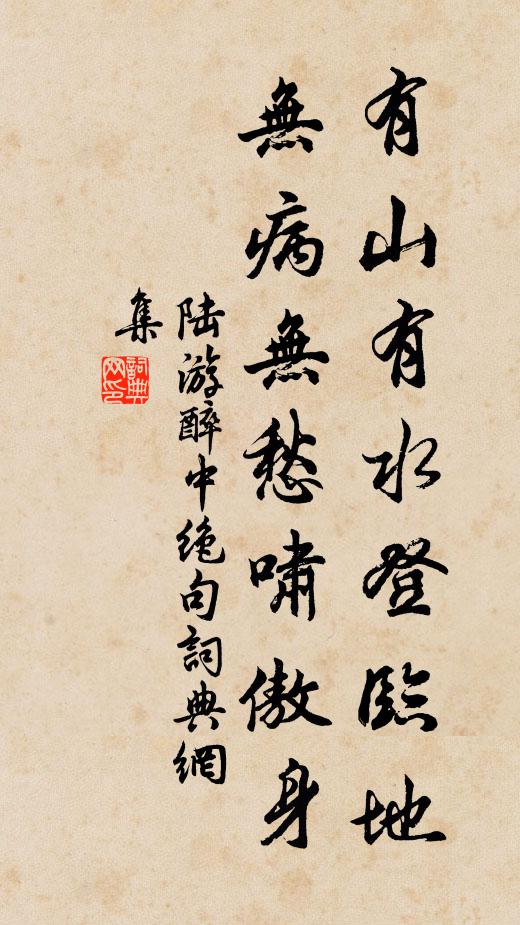 有山有水登臨地
無病無愁嘯傲身
陆游醉中绝句詞典網
集
詞典
网印